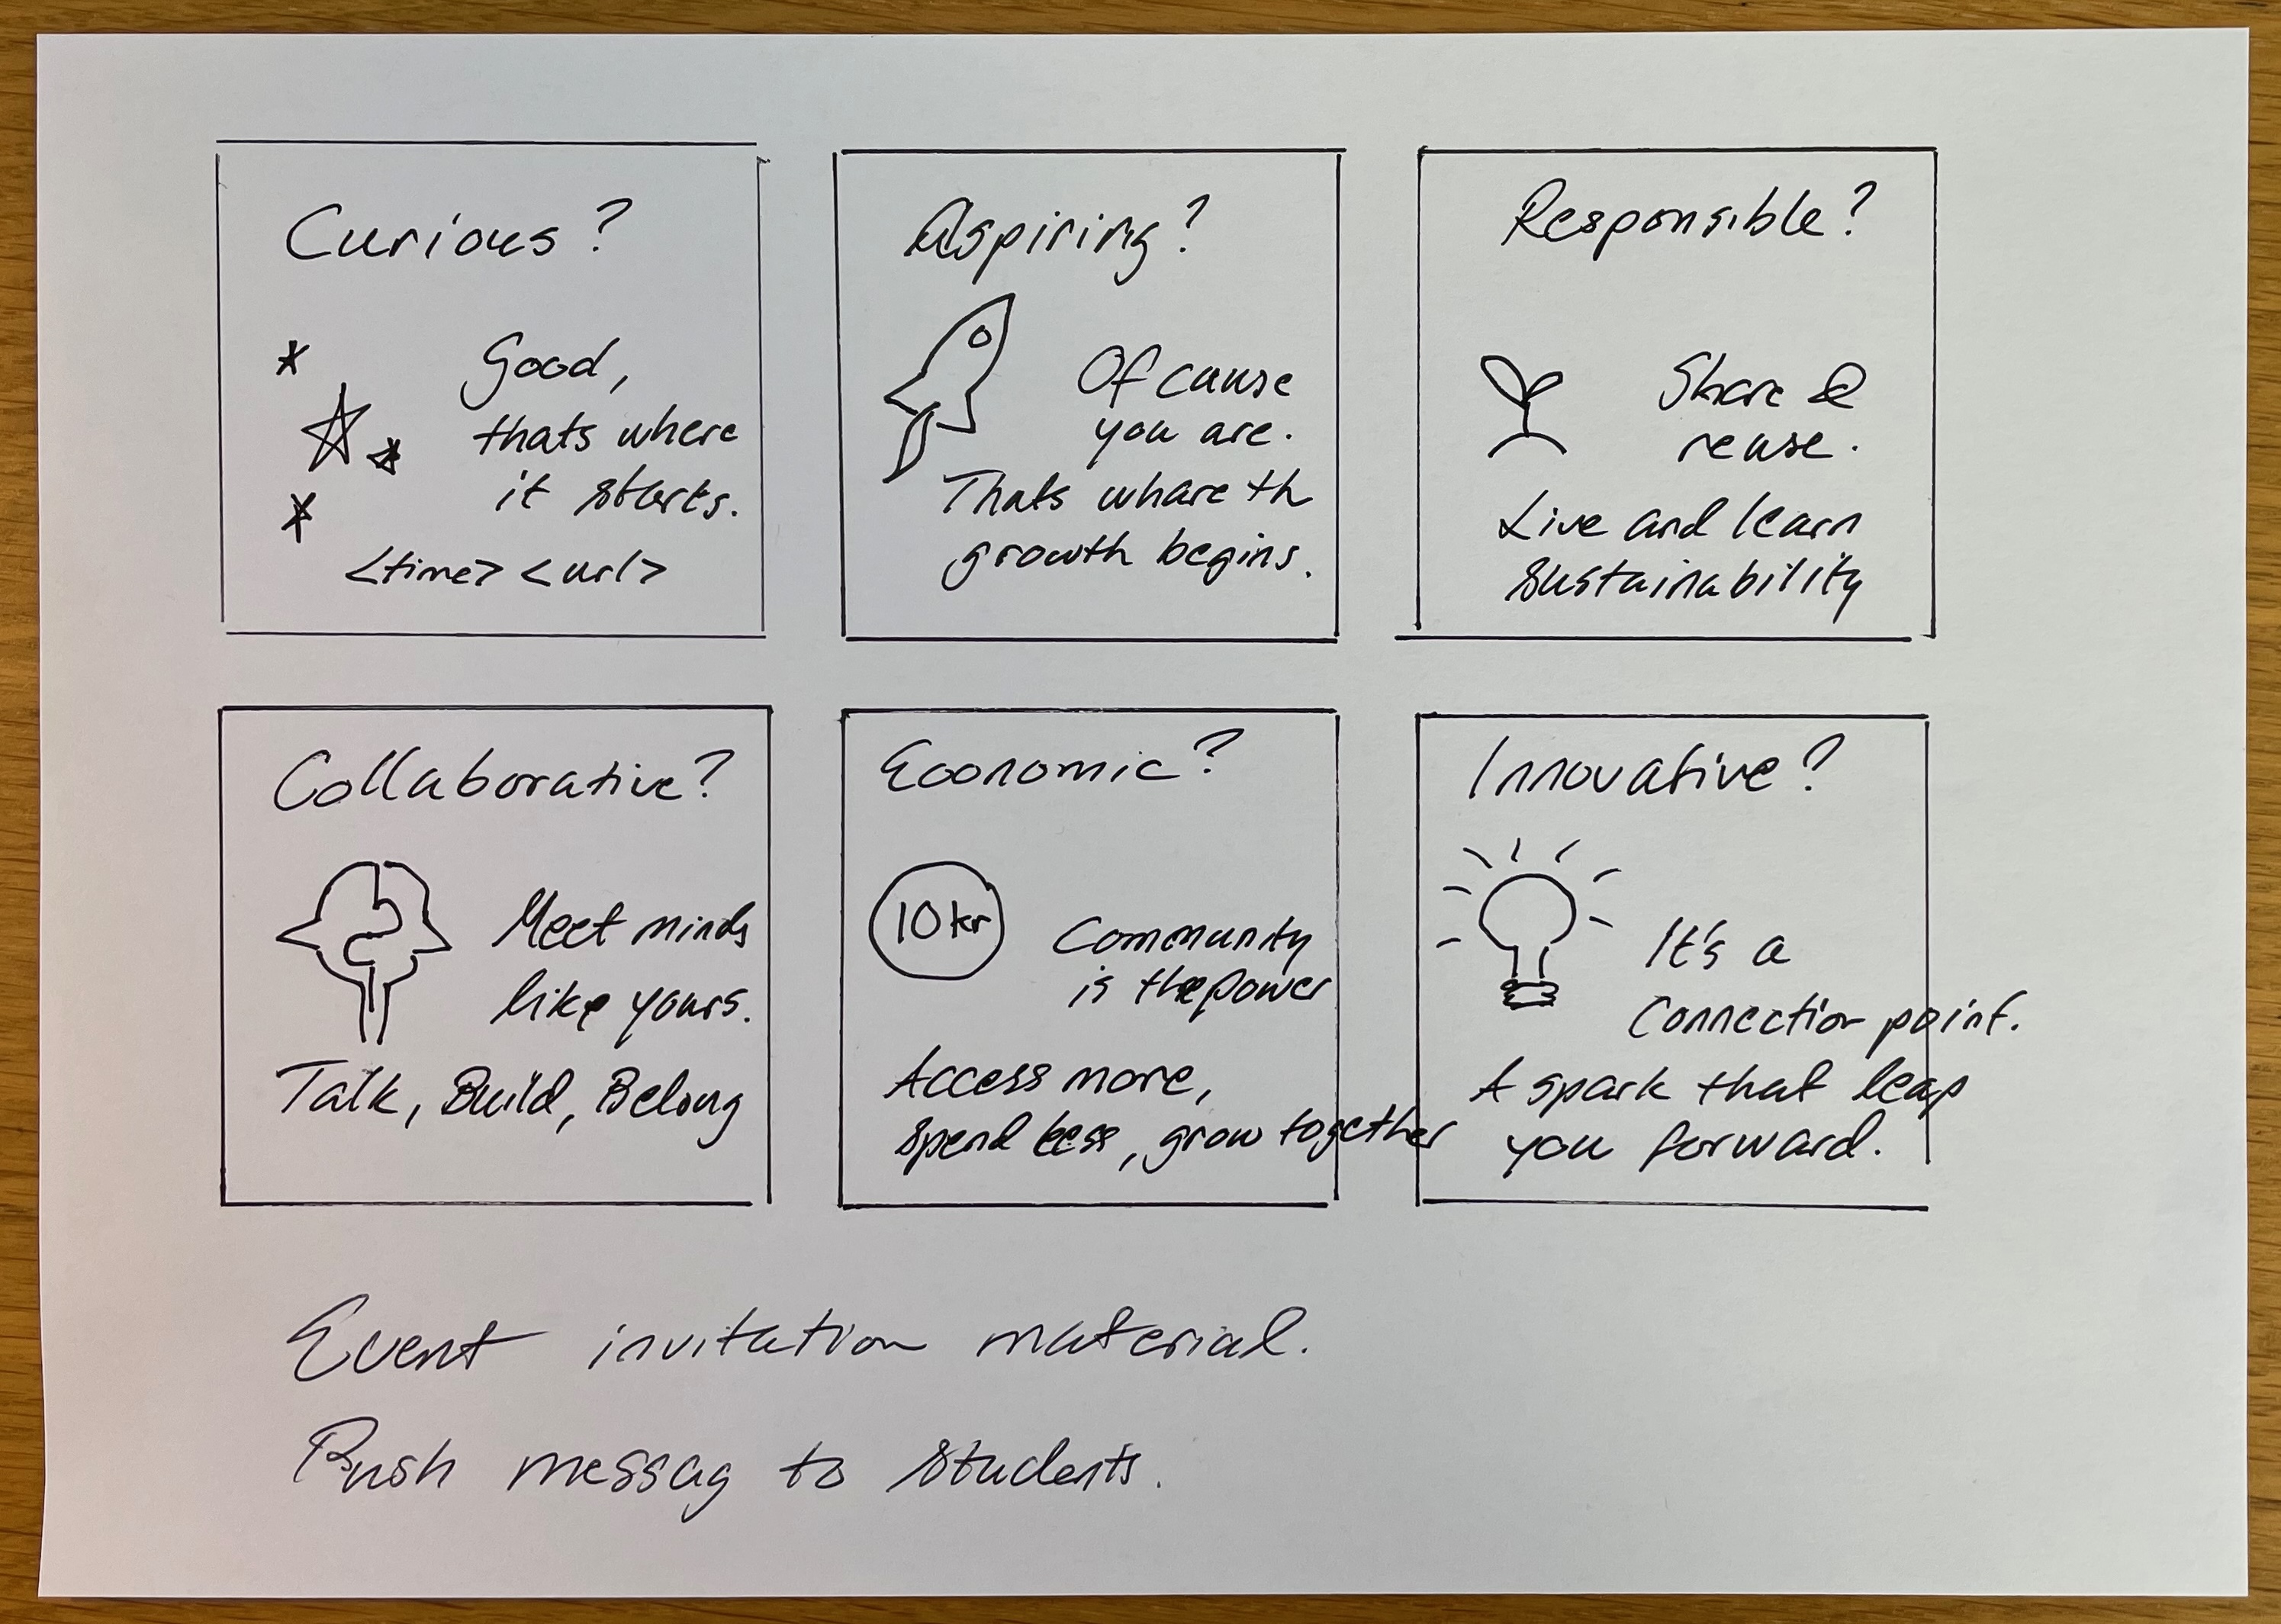 Curious?
Good,
thats where
it starts.
<time> <url>
Aspiring?
Of cause
you are.
Thats whare th
growth begins.
Responsible?
Share &
reuse.
Live and learn
sustainability
Collaborative?
Meet minds
like yours.
Talk, Build, Belong
Economic?
10 kr
Community
is the power
Access more,
spend less, grow together
Innovative?
It's a
Connection point.
A spark that leap
you forward.
Event invitation material.
Push messag to students.